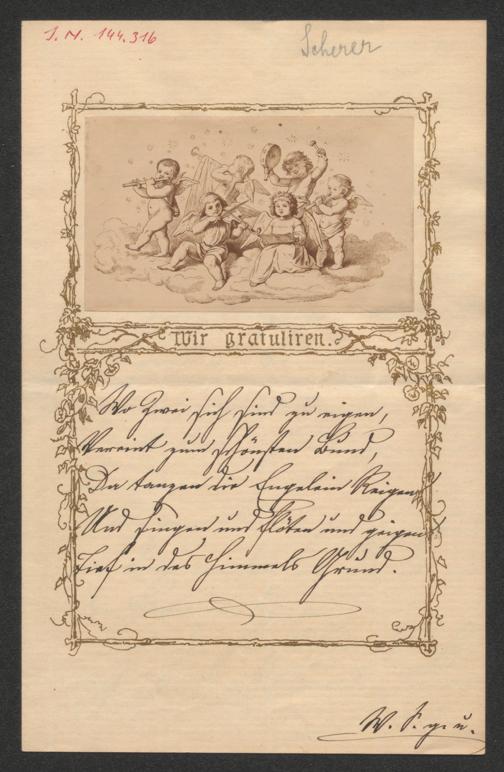 J. N. 144.316
Scherer
Wir gratuliren.
Wo Zwei sich sind zu eigen,
Vereint zum schönsten Bund,
Da tanzen die Engelein Reigen
Und singen und flöten und geigen
Tief in des Himmels Grund.
W. S. g. u.